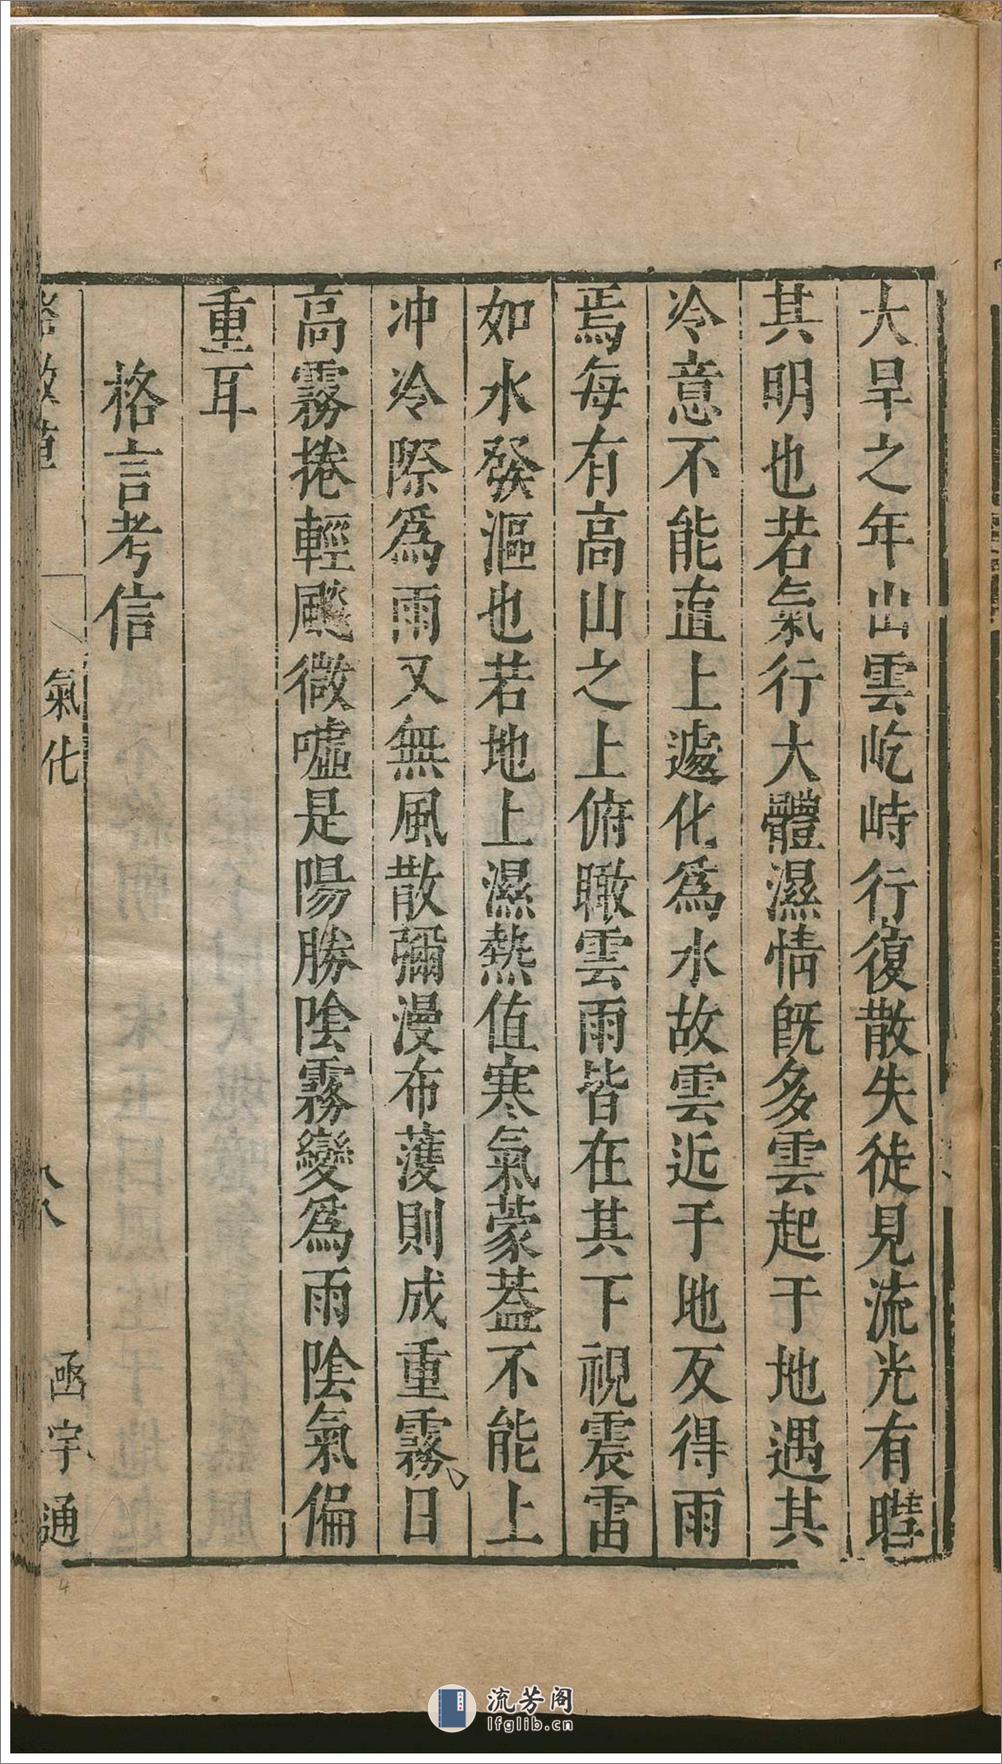 大旱之年出雲屹峙行復散失徒見流光有嘒
其明也若氣行大體濕情旣多雲起于地遇其
冷意不能直上遽化爲水故雲近于地反得雨
焉每有高山之上俯瞰雲雨皆在其下視震雷
如水發漚也若地上濕熱值寒氣蒙蓋不能上
冲冷際爲雨又無風散彌漫布濩則成重霧日
高霧捲輕颸微噓是陽勝陰霧變爲雨陰氣偏
重耳
格言考信
格致草
氣化
八八
函宇通
流芳阁
lfglib.cn